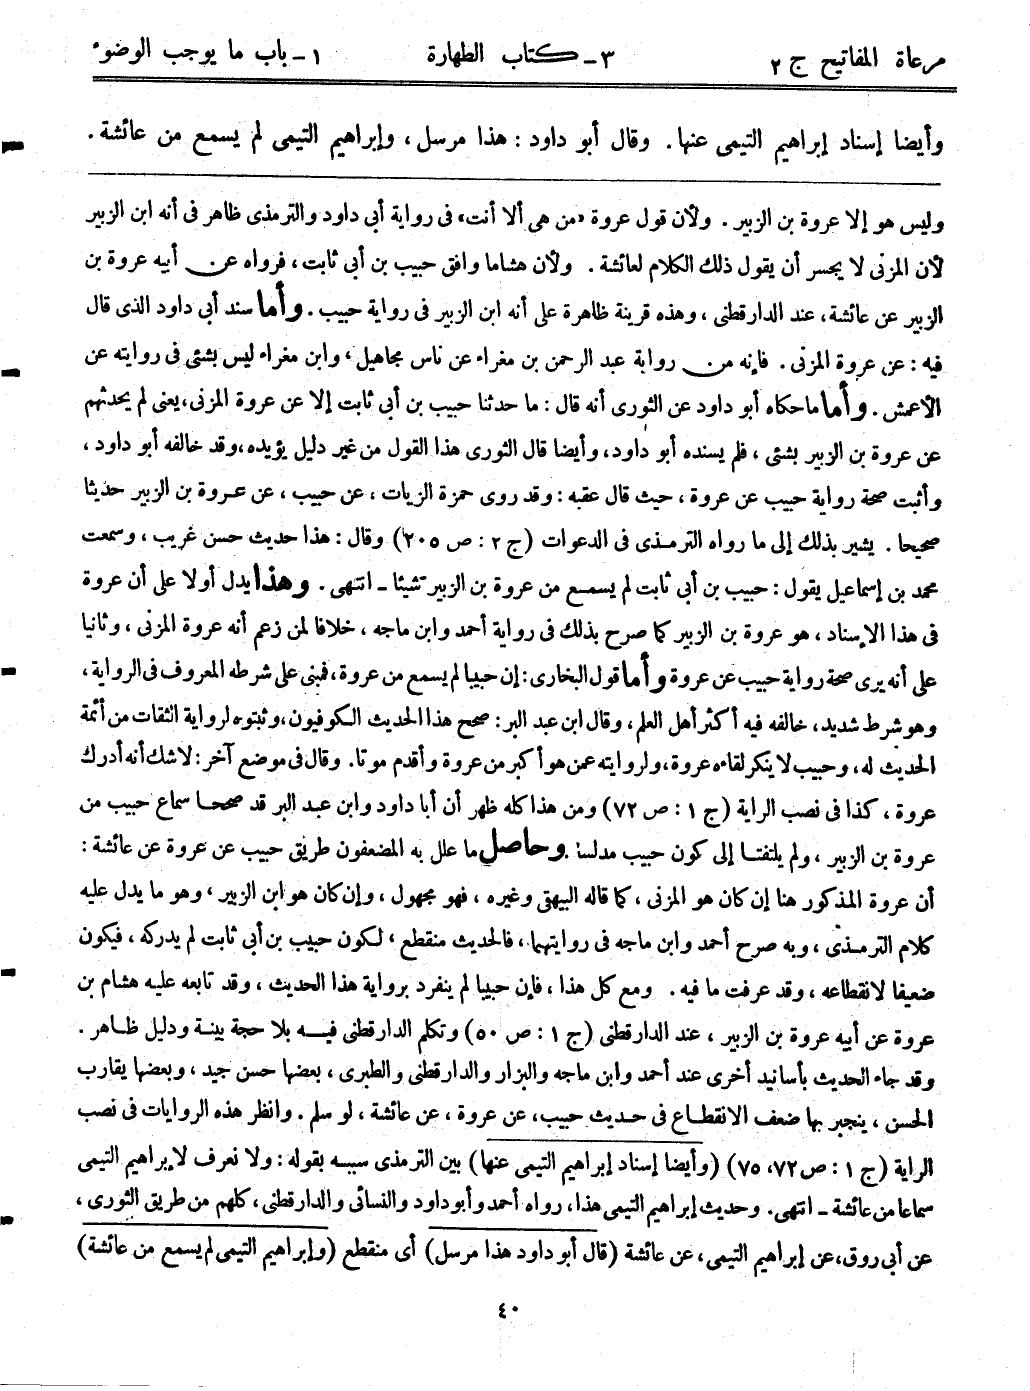 مرعاة المفاتيح ج ٢ ٣ - كتاب الطهارة ١ - باب ما يوجب الوضوء
وأيضا إسناد إبراهيم التيمى عنها. وقال أبو داود : هذا مرسل ، وإبراهيم التيمى لم يسمع من عائشة.
وليس هو إلا عروة بن الزبير. ولأن قول عروة «من هى ألا أنت» فى رواية أبى داود والترمذى ظاهر فى أنه ابن الزبير
لأن المزنى لا يجسر أن يقول ذلك الكلام لعائشة. ولأن هشاما وافق حبيب بن أبى ثابت ، فرواه عن أبيه عروة بن
الزبير عن عائشة، عند الدارقطنى ، وهذه قرينة ظاهرة على أنه ابن الزبير فى رواية حبيب. وأما سند أبى داود الذى قال
فيه : عن عروة المزنى. فإنه من رواية عبد الرحمن بن مغراء عن ناس مجاهيل ، وابن مغراء ليس بشئى فى روايته عن
الأعمش. وأما ما حكاه أبو داود عن الثورى أنه قال : ما حدثنا حبيب بن أبى ثابت إلا عن عروة المزنى، يعنى لم يحدثهم
عن عروة بن الزبير بشئى ، فلم يسنده أبو داود، وأيضا قال الثورى هذا القول من غير دليل يؤيده، وقد خالفه أبو داود ،
وأثبت صحة رواية حبيب عن عروة ، حيث قال عقبه : وقد روى حمزة الزيات ، عن حبيب ، عن عروة بن الزبير حديثا
صحيحا. يشير بذلك إلى ما رواه الترمذى فى الدعوات (ج ٢ : ص ٢٠٥) وقال : هذا حديث حسن غريب ، وسمعت
محمد بن إسماعيل يقول : حبيب بن أبى ثابت لم يسمع من عروة بن الزبير شيئا - انتهى. وهذا يدل أولا على أن عروة
فى هذا الإسناد ، هو عروة بن الزبير كما صرح بذلك فى رواية أحمد وابن ماجه ، خلافا لمن زعم أنه عروة المزنى ، وثانيا
على أنه يرى صحة رواية حبيب عن عروة وأما قول البخارى : إن حبيبا لم يسمع من عروة، فمبنى على شرطه المعروف فى الرواية ،
وهو شرط شديد، خالفه فيه أكثر أهل العلم ، وقال ابن عبد البر : صحح هذا الحديث الكوفيون، وثبتوه لرواية الثقات من أئمة
الحديث له، وحبيب لا ينكر لقاءه عروة، ولروايته عمن هو أكبر من عروة وأقدم موتا. وقال فى موضع آخر : لا شك أنه أدرك
عروة ، كذا فى نصب الراية (ج ١ : ص ٧٢) ومن هذا كله ظهر أن أبا داود وابن عبد البر قد صححا سماع حبيب من
عروة بن الزبير ، ولم يلتفتا إلى كون حبيب مدلسا. وحاصل ما علل به المضعفون طريق حبيب عن عروة عن عائشة :
أن عروة المذكور هنا إن كان هو المزنى ، كما قاله البيهقى وغيره ، فهو مجهول ، وإن كان هو ابن الزبير ، وهو ما يدل عليه
كلام الترمذى ، وبه صرح أحمد وابن ماجه فى روايتهما ، فالحديث منقطع ، لكون حبيب بن أبى ثابت لم يدركه ، فيكون
ضعيفا لانقطاعه ، وقد عرفت ما فيه. ومع كل هذا ، فإن حبيبا لم ينفرد برواية هذا الحديث ، وقد تابعه عليه هشام بن
عروة عن أبيه عروة بن الزبير ، عند الدارقطنى (ج ١ : ص ٥٠) وتكلم الدارقطنى فيه بلا حجة بينة ودليل ظاهر.
وقد جاء الحديث بأسانيد أخرى عند أحمد وابن ماجه والبزار والدارقطنى والطبرى ، بعضها حسن جيد ، وبعضها يقارب
الحسن ، ينجبر بها ضعف الانقطاع فى حديث حبيب، عن عروة ، عن عائشة ، لو سلم. وانظر هذه الروايات فى نصب
الراية (ج ١ : ص ٧٢، ٧٥) (وأيضا إسناد إبراهيم التيمى عنها) بين الترمذى سببه بقوله : ولا نعرف لإبراهيم التيمى
سماعا من عائشة - انتهى. وحديث إبراهيم التيمى هذا، رواه أحمد وأبو داود والنسائى والدارقطنى، كلهم من طريق الثورى ،
عن أبى روق، عن إبراهيم التيمى، عن عائشة (قال أبو داود هذا مرسل) أى منقطع (وإبراهيم التيمى لم يسمع من عائشة)
٤٠